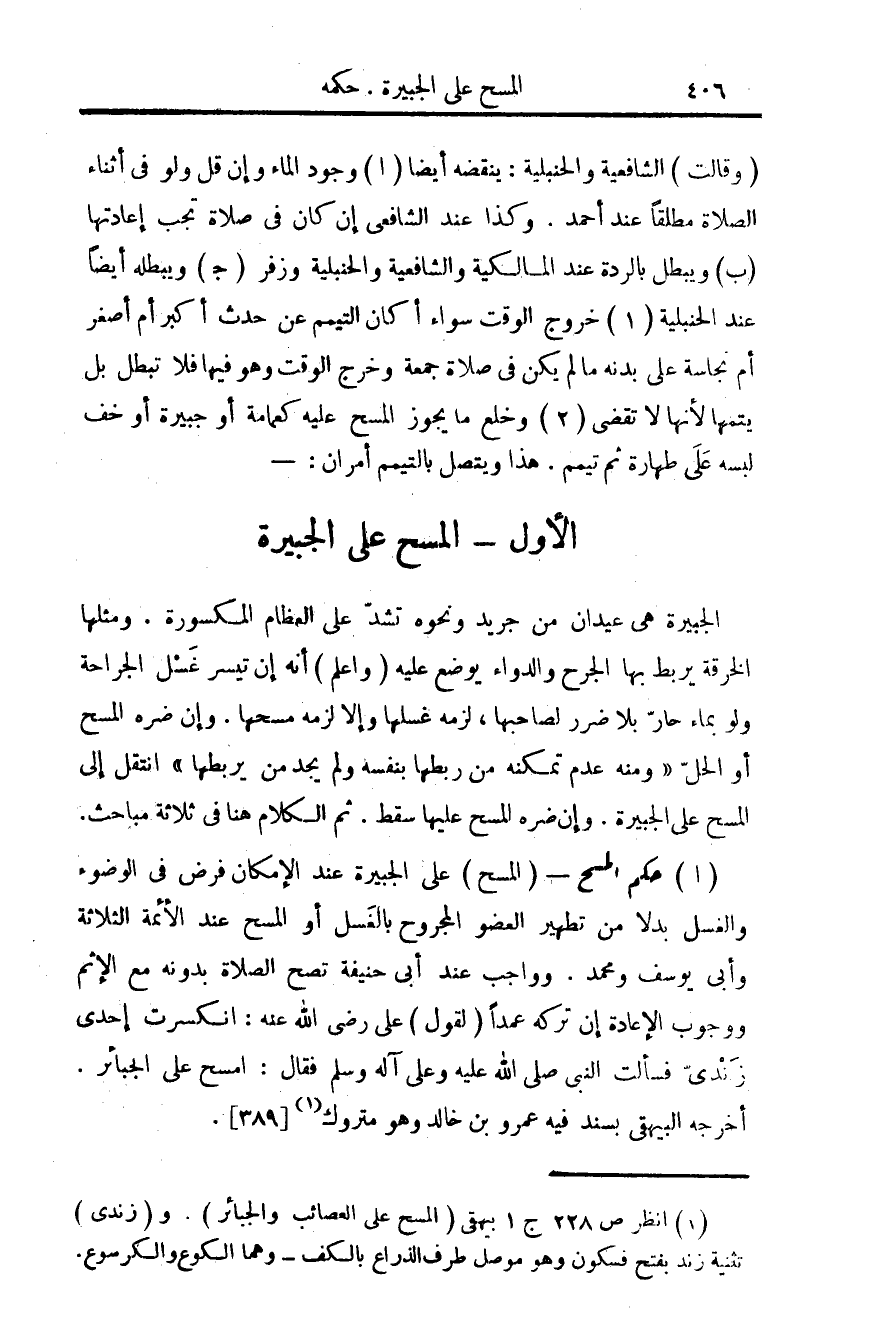 ٤٠٦ المسح على الجبيرة . حكمه
( وقالت ) الشافعية والحنبلية : ينقضه أيضا ( ا ) وجود الماء وإن قل ولو فى أثناء
الصلاة مطلقاً عند أحمد . وكذا عند الشافعى إن كان فى صلاة تجب إعادتها
(ب) ويبطل بالردة عند المالكية والشافعية والحنبلية وزفر ( ج ) ويبطله أيضاً
عند الحنبلية ( ١ ) خروج الوقت سواء أكان التيمم عن حدث أكبر أم أصغر
أم نجاسة على بدنه ما لم يكن فى صلاة جمعة وخرج الوقت وهو فيها فلا تبطل بل
يتمها لأنها لا تقضى ( ٢ ) وخلع ما يجوز المسح عليه كعمامة أو جبيرة أو خف
لبسه عَلَى طهارة ثم تيمم . هذا ويتصل بالتيمم أمران : —
الأول – المسح على الجبيرة
الجبيرة هى عيدان من جريد ونحوه تشدّ على العظام المكسورة . ومثلها
الخرقة يربط بها الجرح والدواء يوضع عليه ( واعلم ) أنه إن تيسر غَسْل الجراحة
ولو بماء حارّ بلا ضرر لصاحبها ، لزمه غسلها وإلا لزمه مسحها . وإن ضره المسح
أو الحلّ « ومنه عدم تمكنه من ربطها بنفسه ولم يجد من يربطها » انتقل إلى
المسح على الجبيرة . وإن ضره المسح عليها سقط . ثم الكلام هنا فى ثلاثة مباحث.
( ا ) حكم المسح – ( المسح ) على الجبيرة عند الإمكان فرض فى الوضوء
والغسل بدلا من تطهير العضو المجروح بالغَسل أو المسح عند الأئمة الثلاثة
وأبى يوسف ومحمد . وواجب عند أبى حنيفة تصح الصلاة بدونه مع الإثم
ووجوب الإعادة إن تركه عمداً ( لقول ) على رضى الله عنه : انكسرت إحدى
زَنْدىّ فسألت النبى صلى الله عليه وعلى آله وسلم فقال : امسح على الجبائر .
أخرجه البيهقى بسند فيه عمرو بن خالد وهو متروك(١) [٣٨٩] .
(١) انظر ص ٢٢٨ ج ١ بيهقى ( المسح على العصائب والجبائر ) . و ( زندى )
تثنية زند بفتح فسكون وهو موصل طرف الذراع بالكف – وهما الكوع والكرسوع.